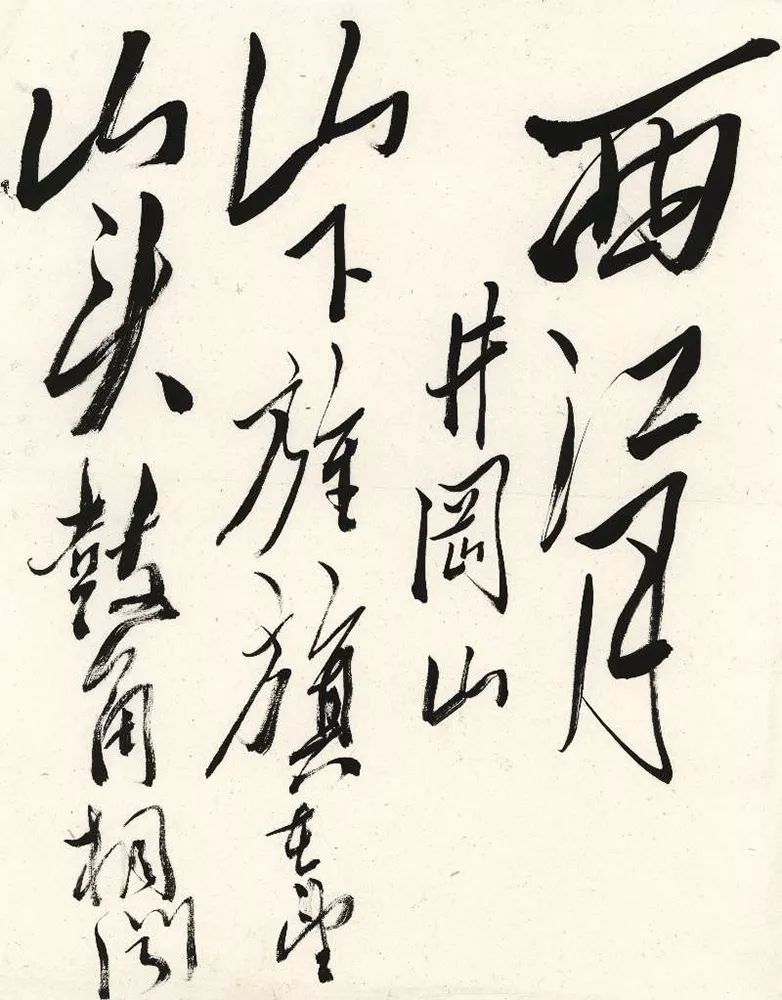 西江月
井岡山
山下旌旗在望
山头鼓角相闻